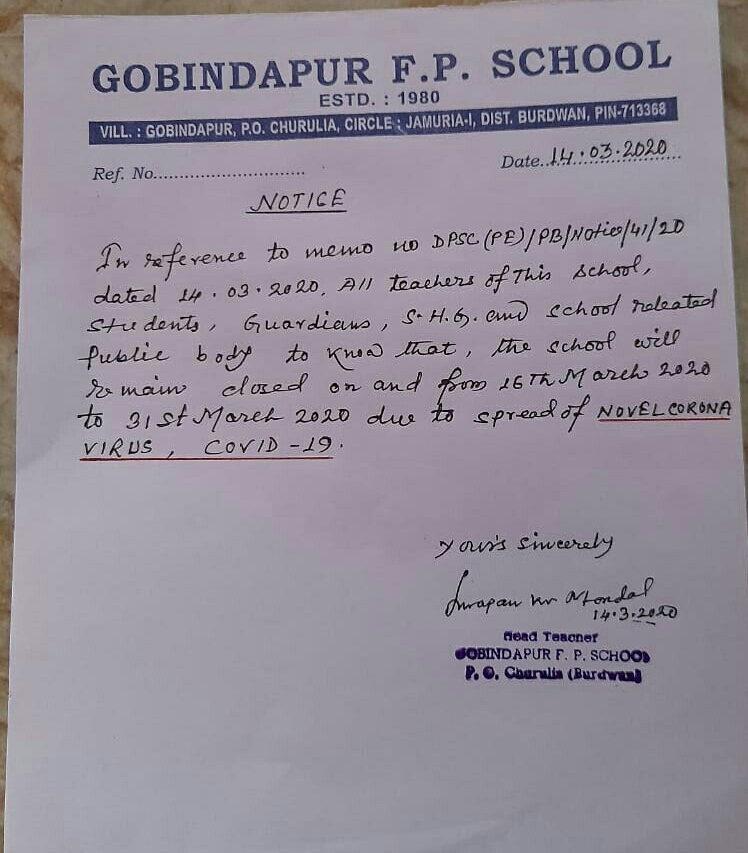 GOBINDAPUR F.P. SCHOOL
ESTD. : 1980
VILL. : GOBINDAPUR, P.O. CHURULIA, CIRCLE : JAMURIA-I, DIST. BURDWAN, PIN-713368
Ref. No............................. Date..14.03.2020
NOTICE
In reference to memo no DPSC(PE)/PB/Notice/41/20
dated 14.03.2020, All teachers of This School,
Students, Guardians, S.H.G. and school releated
Public body to know that, the school will
remain closed on and from 16Th March 2020
to 31st March 2020 due to spread of NOVELCORONA
VIRUS, COVID-19.
Your's sincerely
Kr Mondal
14.3.2020
Head Teacher
GOBINDAPUR F. P. SCHOOL
P. O. Churulia (Burdwan)